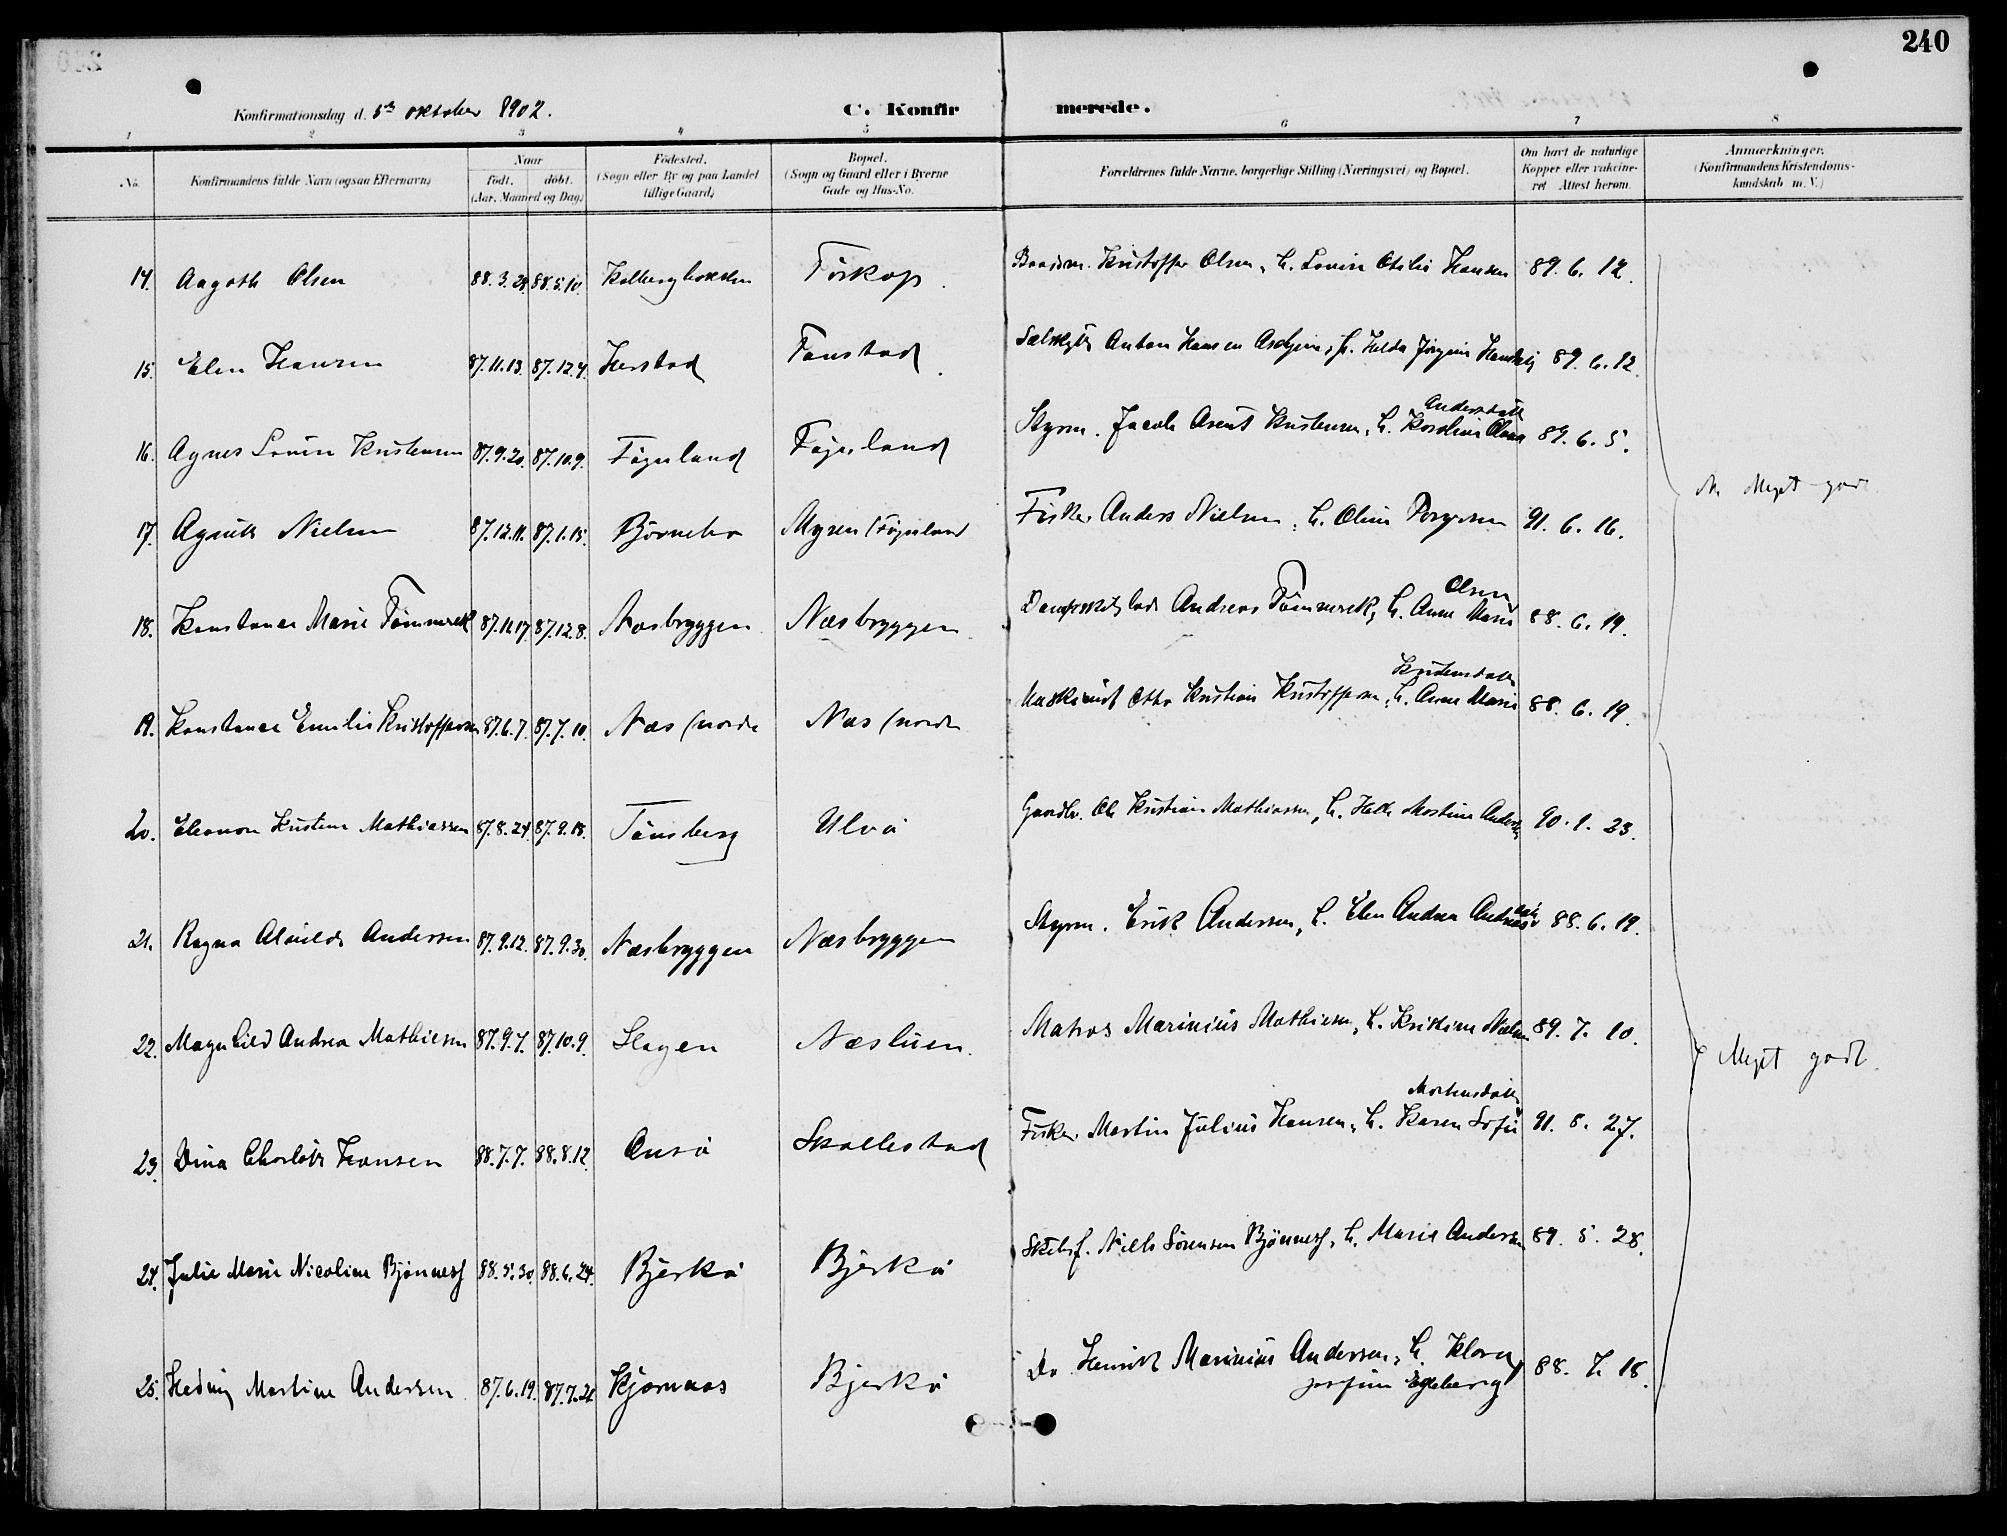 240
Konfirmationsdag d. 5te oktober 1902. C. Konfirmerede.
1 2 3 4 5 6 7 8
No. Konfirmandens fulde Navn (ogsaa Efternavn) Naar født. døbt. (Aar, Maaned og Dag.) Fødested. (Sogn eller By og paa Landet tillige Gaard.) Bopæl. (Sogn og Gaard eller i Byerne Gade og Hus-No. Forældrenes fulde Navne, borgerlige Stilling (Næringsvei) og Bopæl. Om havt de naturlige Kopper eller vakcineret. Attest herom. Anmærkninger. (Konfirmandens Kristendomskundskab m. V.)
14. Aagoth Olsen 88.3.28 88.5.10. Torkop. Kristoffer Olsen, h. Lovise Otilie Hansen 89.6.12.
15. Elen Hansen 87.11.13. 87.12.4. Herstad Fonstad. Anton Hansen h. Hilda 89.6.12.
Andersdatt
16. Agnes Lovise Kristensen 87.9.20. 87.10.9. Føynland Føynland Styrm. Jacob Arent Kristensen, h. Karoline Olava 89.6.5.
17. Agnete Nielsen 87.12.11. 87.1.15. Bjørnebo Myren (Føynland Fisker Anders Nielsen, h. Oline 91.6.16.
Meget godt
Olsen
18. Konstance Marie Tømmerek 87.11.17 87.12.8. Næsbryggen Næsbryggen Andreas Tømmerek, h. Anne Marie 88.6.19.
Kristensdatt
19. Konstance Emilie Kristoffersen 87.6.7. 87.7.10. Næs (nordre Næs (nordre Maskinist Otto Kristian Kristoffersen, h. Anne Marie 88.6.19.
20. Eleonore Kristine Mathiassen 87.8.24 87.9.18. Tønsberg Ulvø Gaardbr. Ole Kristian Mathiassen, h. Helle Martine Anders 90.1.23.
21. Ragna Alvilde Andersen 87.9.12. 87.9.30. Næsbryggen Næsbryggen Styrm. Erik Andersen, h. Elen Andrea Andreasdatr 88.6.19.
22. Magnhild Andrea Mathiesen 87.9.7. 87.10.9. Slagen Næsluen. Matros Marinius Mathiesen, h. Kristine Nielsen 89.7.10.
Meget godt.
Mortensdatt
23. Dina Charlotte Hansen 88.7.7. 88.8.12. Skallestad Fisker Martin Julius Hansen, h. Karen Sofie 91. 8. 27.
24. Julie Marie Nicoline Bjønness 88.5.30. 88.6.24. Bjerkø Bjerkø Skibsf. Niels Sørensen Bjønness, h. Marie Andersen 89. 5. 28.
25. Hedvig Martine Andersen 87.6.19. 87.7.21 Kjørnaas Bjerkø Do Henrik Marinius Andersen, h. Klara
Josefine Egeberg 88. 7. 18.